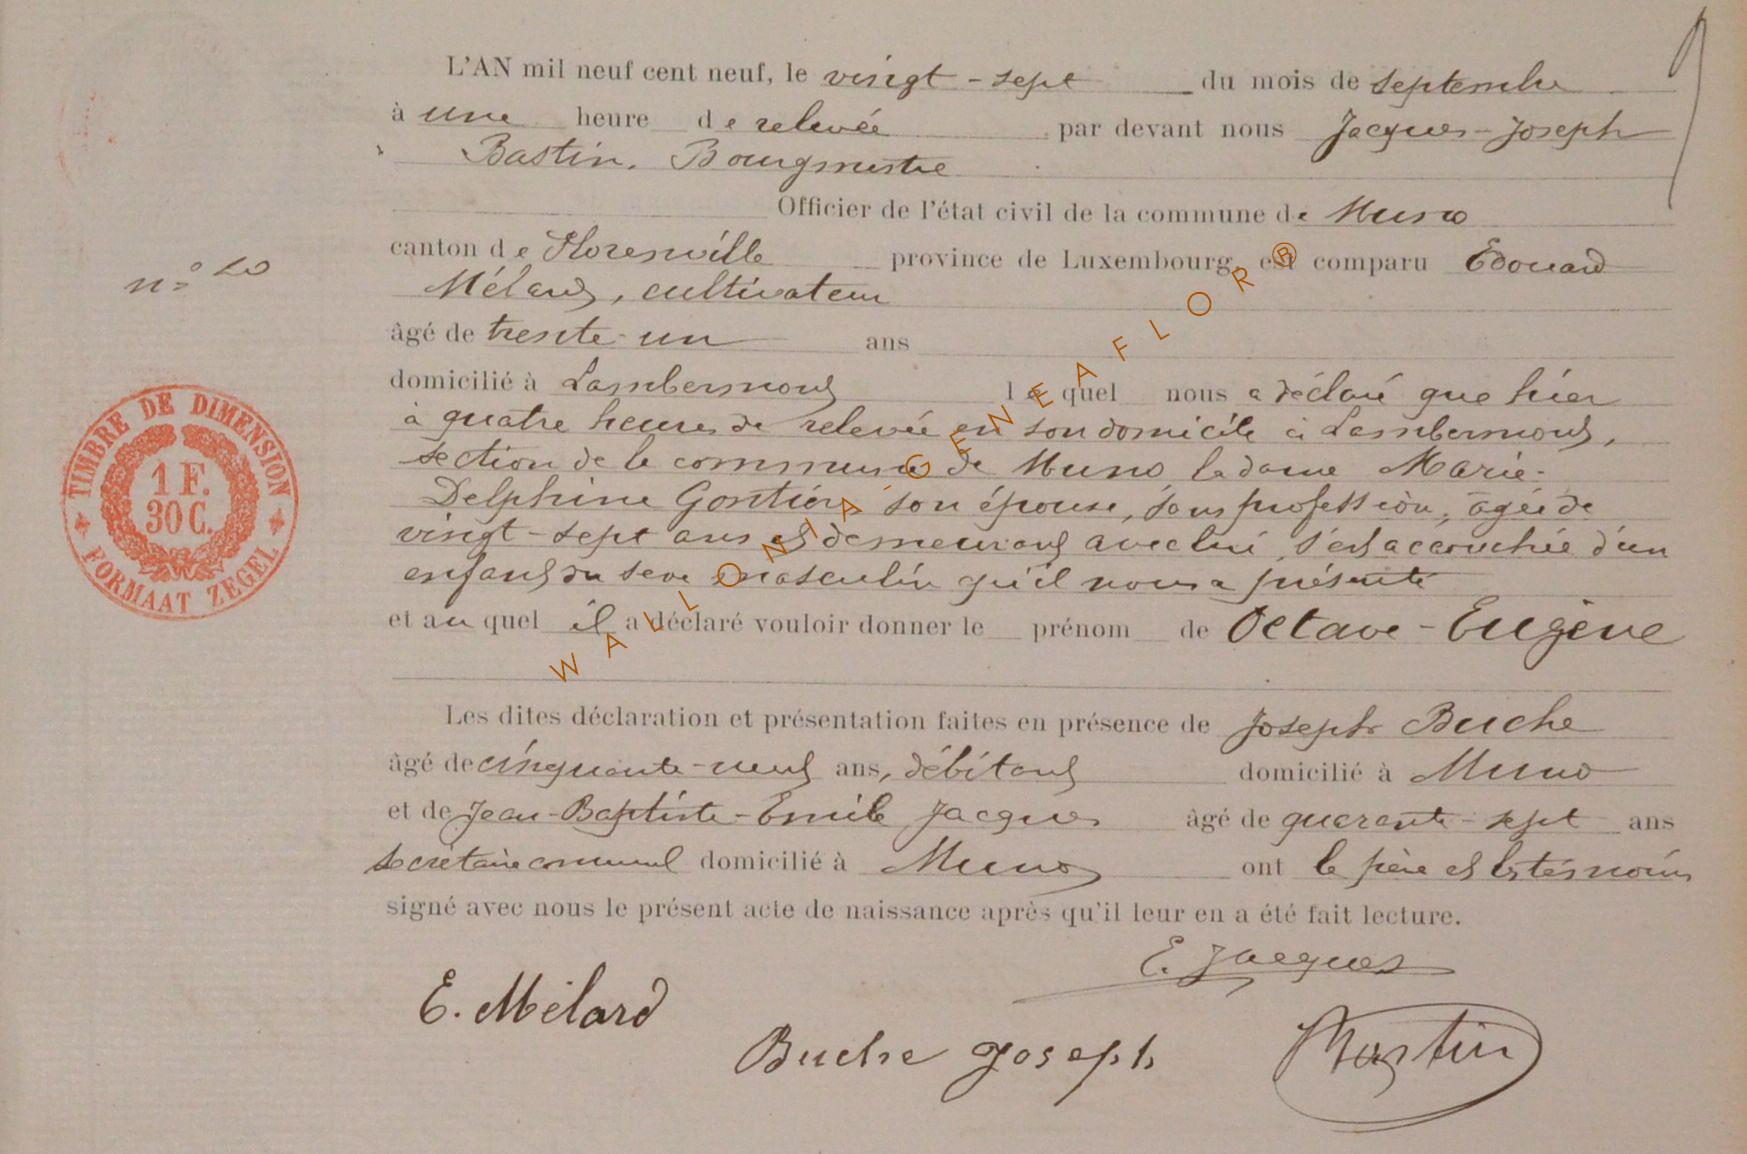 L'AN mil neuf cent neuf, le vingt-sept du mois de septembre
à une heure de relevée par devant nous Jacques-Joseph
Bastin, Bourgmestre
Officier de l'état civil de la commune de Muno
canton de Florenville province de Luxembourg, est comparu Edouard
Mélard, cultivateur
n° 20
âgé de trente-un ans
domicilié à Lambermont lequel nous a déclaré que hier
à quatre heures de relevée en son domicile à Lambermont,
section de la commune de Muno la dame Marie-
Delphine Gontier, son épouse, sans profession, âgée de
vingt-sept ans et demeurant avec lui, s'est accouchée d'un
enfant du sexe masculin qu'il nous a présenté
et auquel il a déclaré vouloir donner le prénom de Octave-Eugène
Les dites déclaration et présentation faites en présence de Joseph Buche
âgé de cinquante-neuf ans, débitant domicilié à Muno
et de Jean-Baptiste-Emile Jacques âgé de quarante-sept ans
secrétaire communal domicilié à Muno ont le père et les témoins
signé avec nous le présent acte de naissance après qu'il leur en a été fait lecture.
E. Jacques
E. Mélard
Buche Joseph
Bastin
TIMBRE DE DIMENSION
1 F.
30 C.
FORMAAT ZEGEL
WALLONIA-GENEAFLOR®